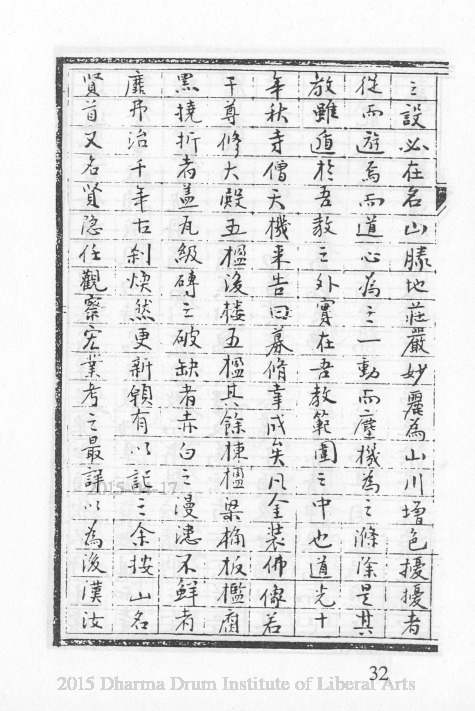 之設必在名山勝地莊嚴妙麗為山川增色擾擾者
從而遊焉而道心為之一動而塵機為之滌除是其
教雖遁於吾教之外實在吾教範圍之中也道光十
年秋寺僧天機來告曰募脩幸成矣凡金裝佛像若
干尊修大殿五楹後楼五楹其餘棟楹梁桷板檻腐
黑撓折者蓋瓦級磚之破缺者赤白之漫漶不鮮者
靡弗治千年古刹煥然更新願有以記之余按山名
賢首又名賢隐任觀察宏業考之最詳以為後漢汝
2015-04-17
32
2015 Dharma Drum Institute of Liberal Arts